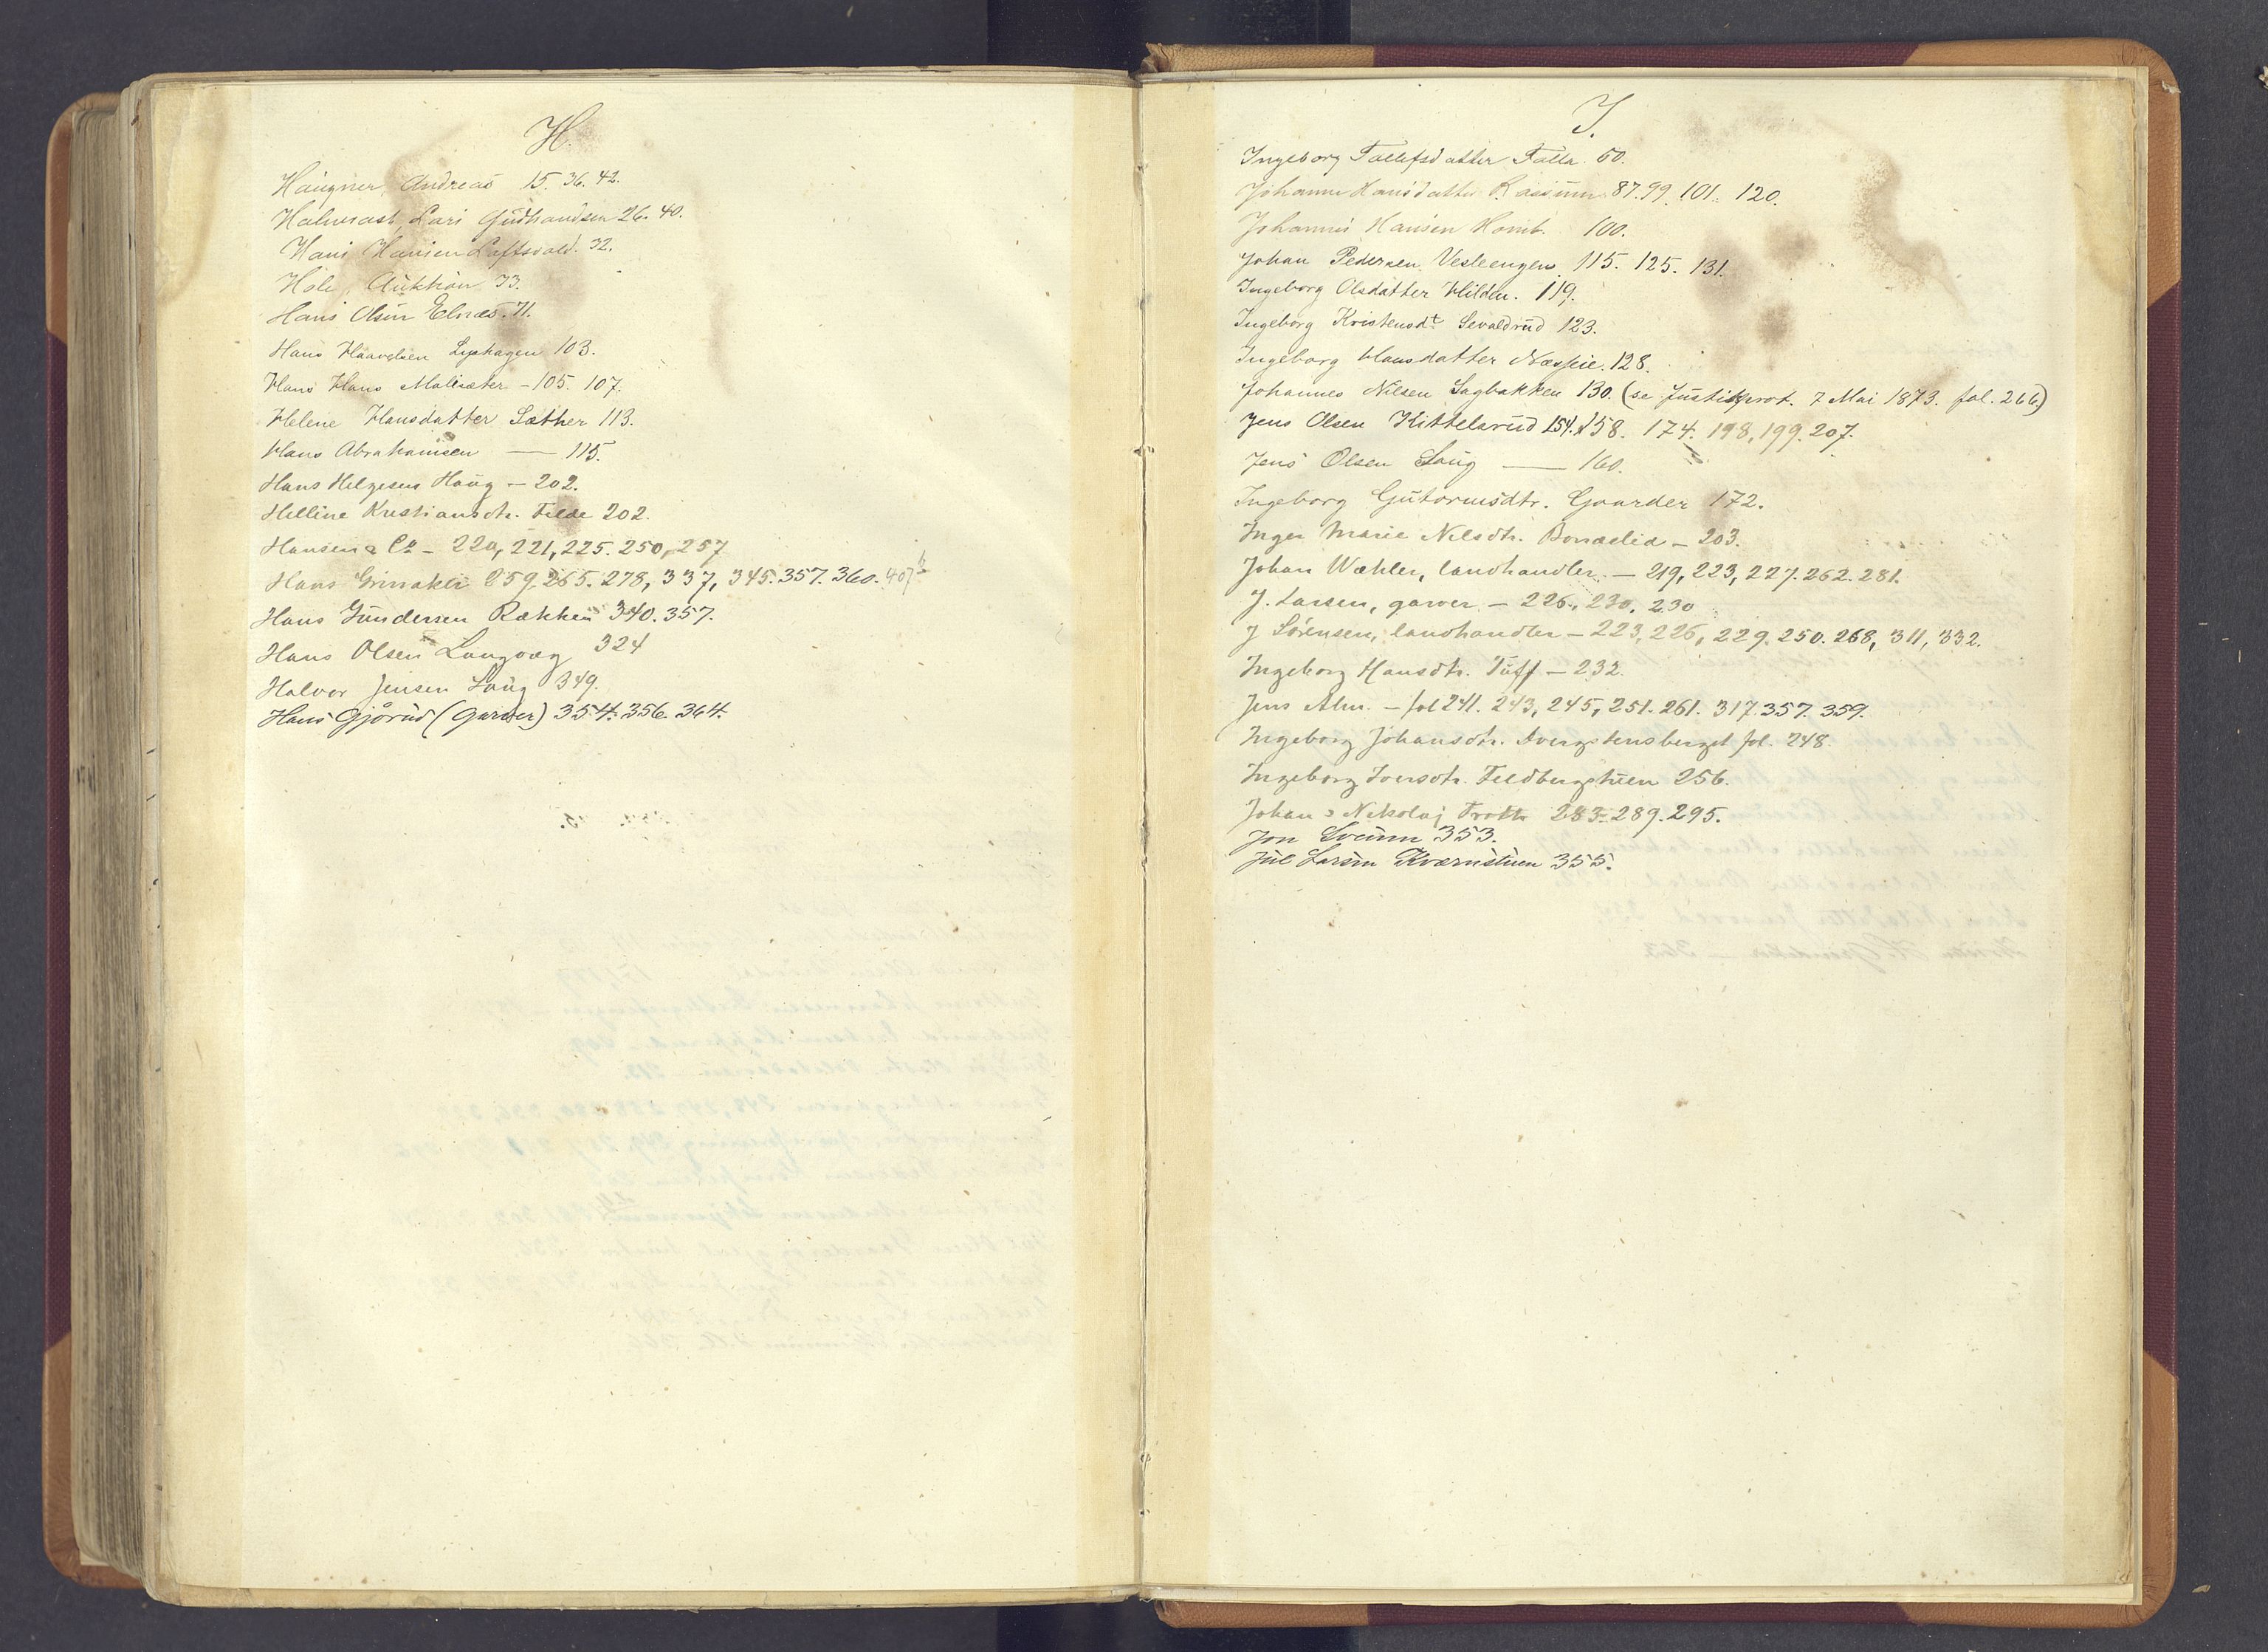 H.
Haugner, Andreas 15. 36. 42.
Halmrast, Lari Gudbrandsen 26. 40.
Hans Hansen Loftsvold. 32.
Hole, Auktion 33.
Hans Olsen Elnæs. 71.
Hans Haavelsen Lyshagen 103.
Hans Hans Malisæter - 105. 107.
Helene Hansdatter Sæther 113.
Hans Abrahamsen — 115.
Hans Helgesen Haug - 202.
Helline Kristiansdtr. Felde 202.
Hansen & Co - 220, 221, 225. 250, 257
Hans Grinaker 259. 265. 278, 337, 345. 357. 360. 407
Hans Gundersen Rækken 340. 357.
Hans Olsen Langvæg 324
Halvor Jensen Haug 349.
Hans Gjørud (garver) 354. 356. 364.
I.
Ingeborg Tollefsdatter Falla. 60.
Johanne Hansdatter Rassum 87. 99. 101. 120.
Johannes Hansen Homb. 100.
Johan Pedersen Vesleengen. 115. 125. 131.
Ingeborg Olsdatter Hilden. 119.
Ingeborg Kristensdt Sevaldrud 123.
Ingeborg Hansdatter Næsseie. 128.
Johannes Nilsen Sagbakken 130. (se Justitsprot. 7 Mai 1873. fol. 266)
Jens Olsen Kittelsrud 154. 158. 174. 198, 199. 207.
Jens Olsen Haug — 160.
Ingeborg Gutormsdtr. Gaarder 172.
Inger Marie Nelsdtr. Bonælia - 203.
Johan Wæhler, landhandler. - 219, 223, 227. 262. 281.
J. Larsen, garver - 226, 230. 230
J Sörensen, landhandler - 223, 226, 229. 250. 268, 311, 332.
Ingeborg Hansdtr. Tuff - 232.
Jens Alm. - fol 241. 243, 245, 251. 261. 317. 357. 359.
Ingeborg Johansdtr. Dvergstensberget fol. 248.
Ingeborg Iversdtr. Feldbergstuen 256.
Johan Nikolaj Trotts 283. 289. 295.
Jon Sveum 353.
Jul Larsen Kværnstuen 355.